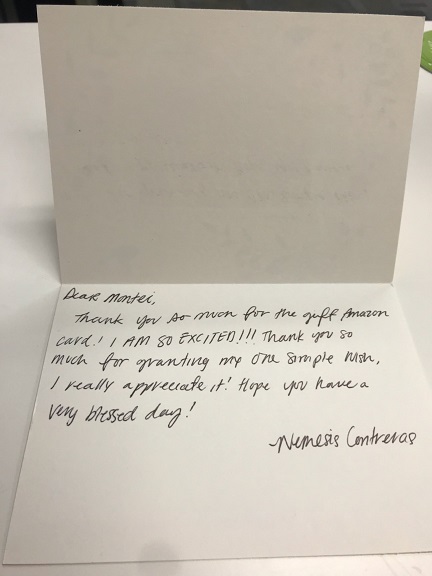 Dear Montei,
Thank you so much for the guff Amazon
card! I AM SO EXCITED!!! Thank you so
much for granting my one simple wish,
I really appreciate it! Hope you have a
very blessed day!
~Nemesis Contreras